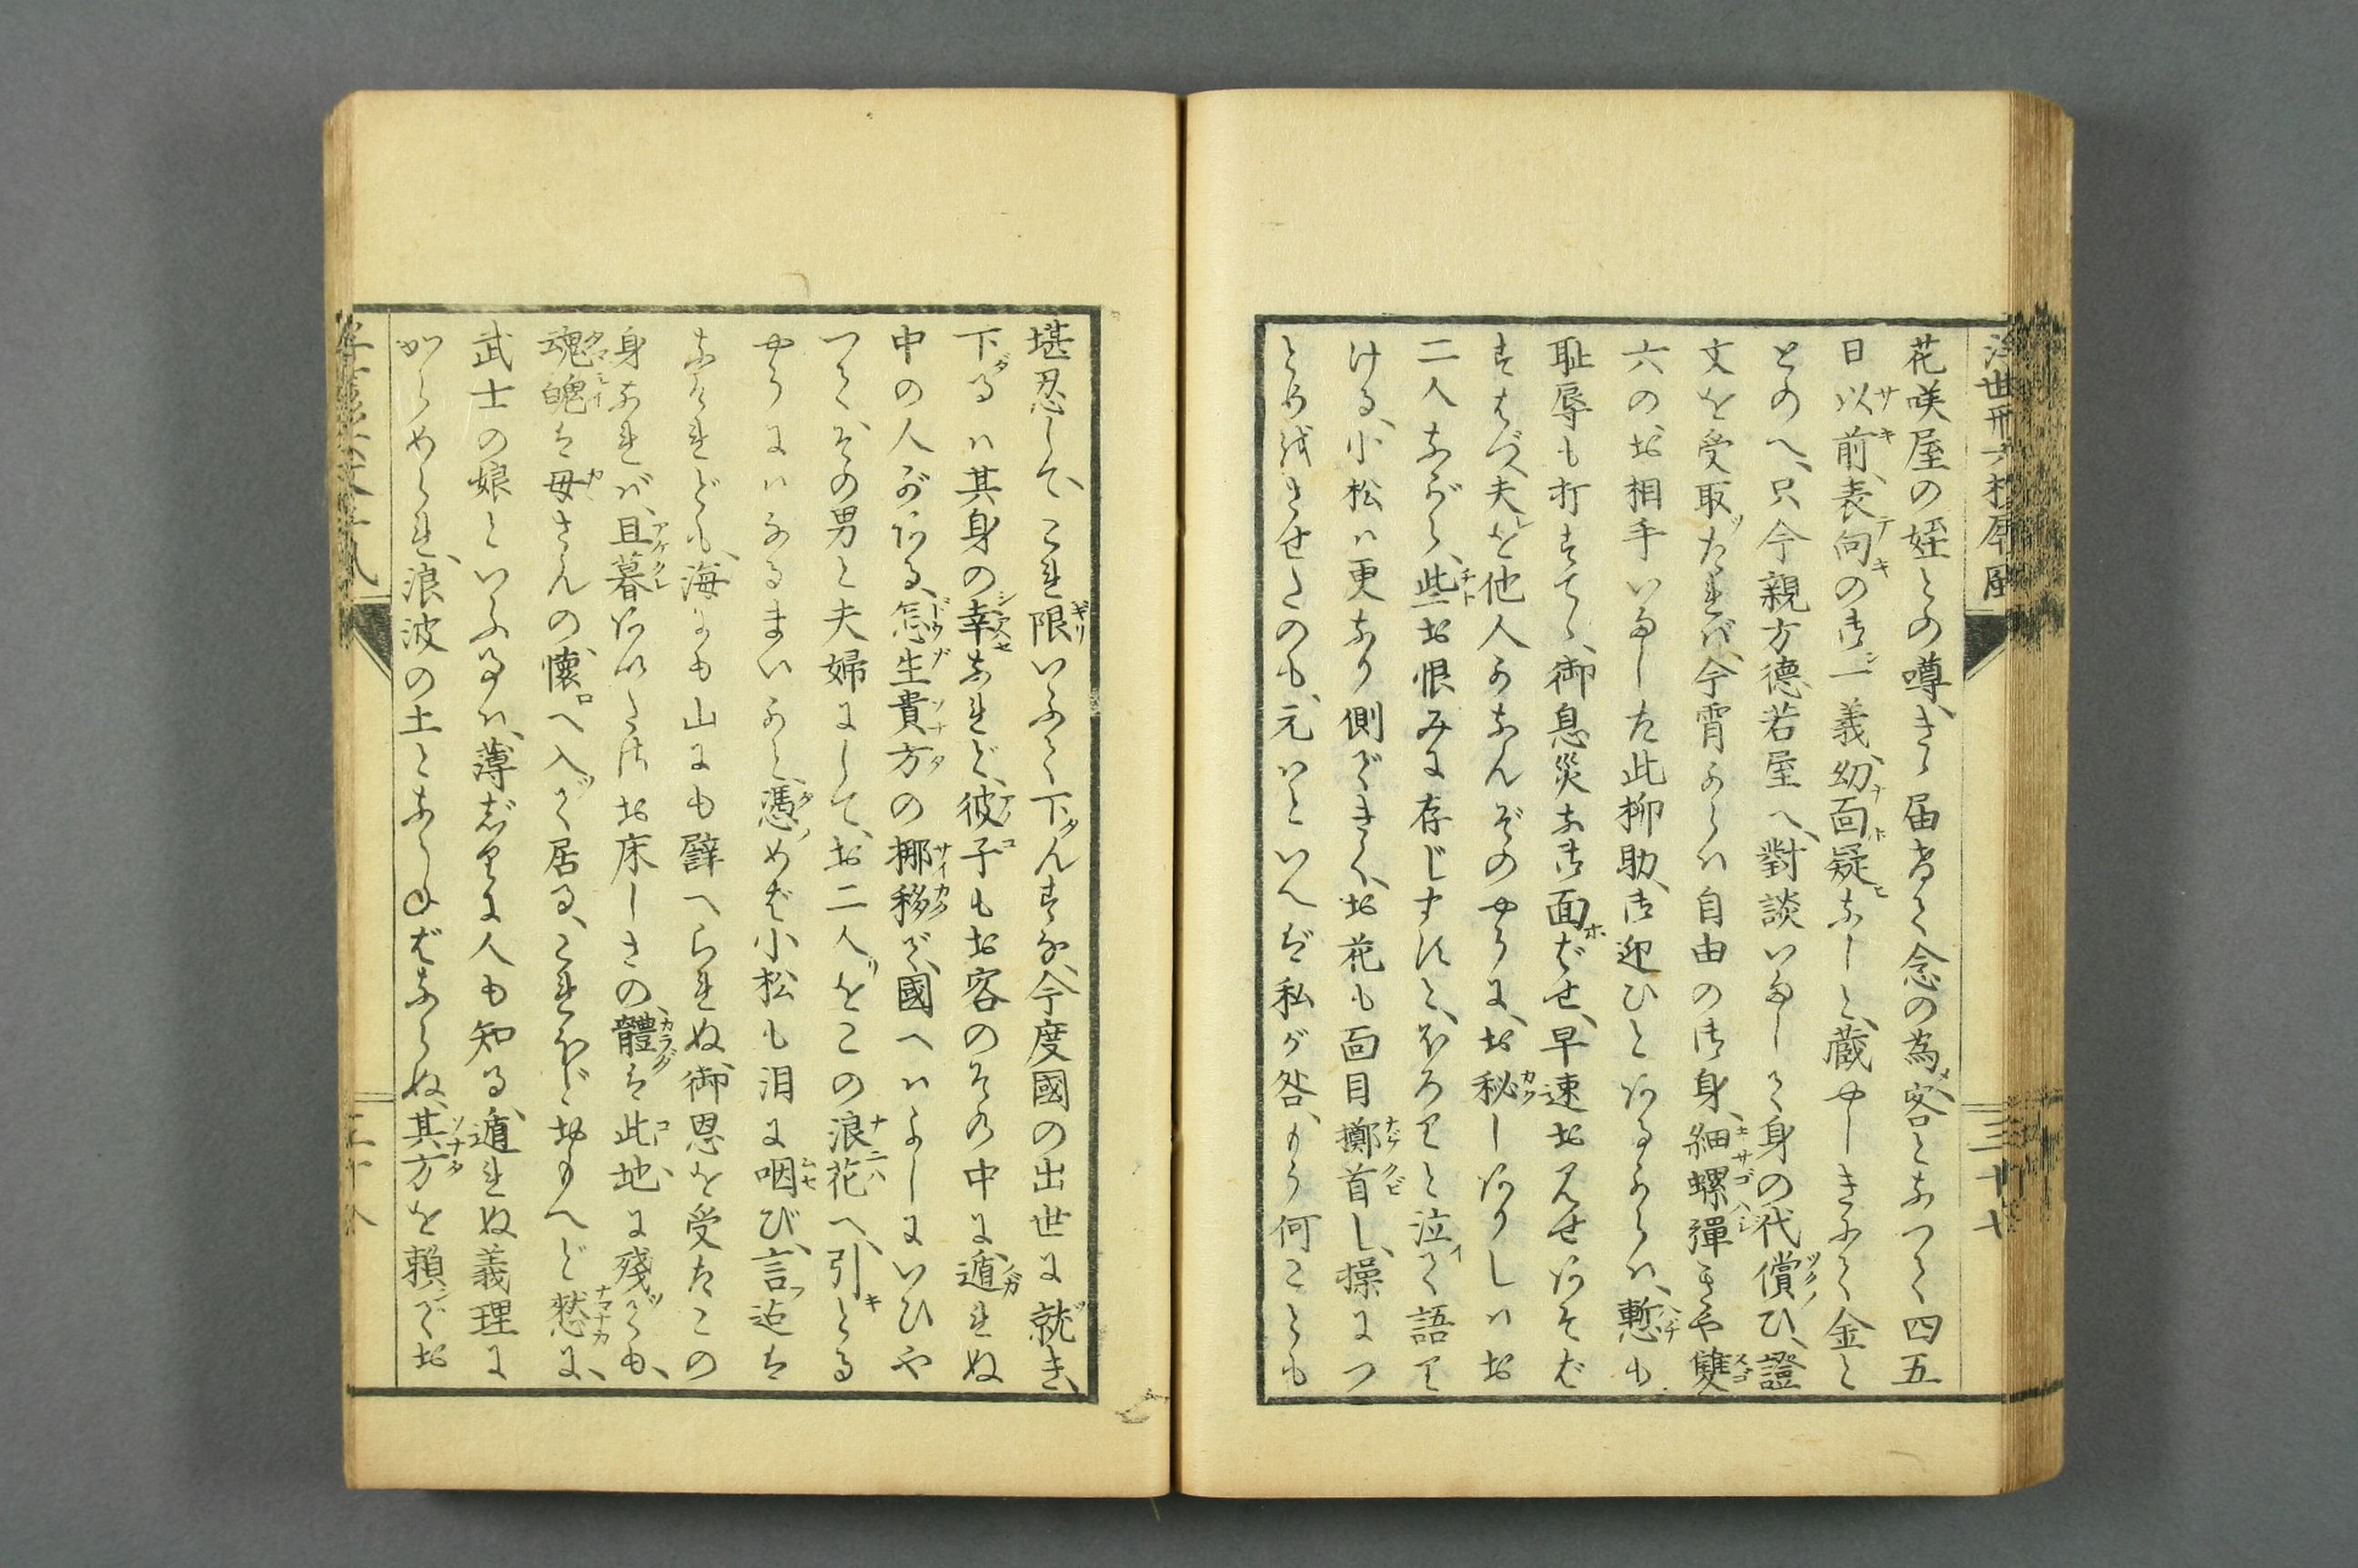 花咲屋の姪との噂、きゝ届けて念の為、客となつて四五
日以前、表向の御一義、幼面疑なしと、蔵やしきにて金と
とのへ、只今親方徳若屋へ、對談いたして身の代償ひ、證
文を受取たれば、今宵よりは自由の御身、細螺彈きや雙
六の、お相手いたした此柳助、御迎ひとあるからは、慙も
恥辱も打すてゝ、御息災な御面ばせ、早速お見せあそば
すはづ、夫を他人かなんぞのやうに、お秘しありしはお
二人ながら、些お恨みに存じますと、ほろりと泣て語り
ける、小松は更なり側できく、お花も面目擲首し、操につ
とめ越させたのも、元はといへば私が咎、もう何ことも
堪忍して、これ限いふて下んすな、今度國の出世に就き、
下るは其身の幸なれど、彼子もお客のその中に、遁れぬ
中の人がある、怎生貴方の揶移で、國へはよしにいひや
つて、その男と夫婦にして、お二人をこの浪花へ、引とる
やうにはなるまいかと、憑めば小松も泪に咽び、言迄は
なけれども、海にも山にも譬へられぬ、御恩を受たこの
身なれば、且暮あひたさお床しさの、體は此地に殘ても、
魂魄は母さんの、懷へ入て居る、これほどおもへど憖に、
武士の娘といふ事は、薄ぢりに人も知る、遁れぬ義理に
からめられ、浪波の土とならねばならぬ、其方を頼でお